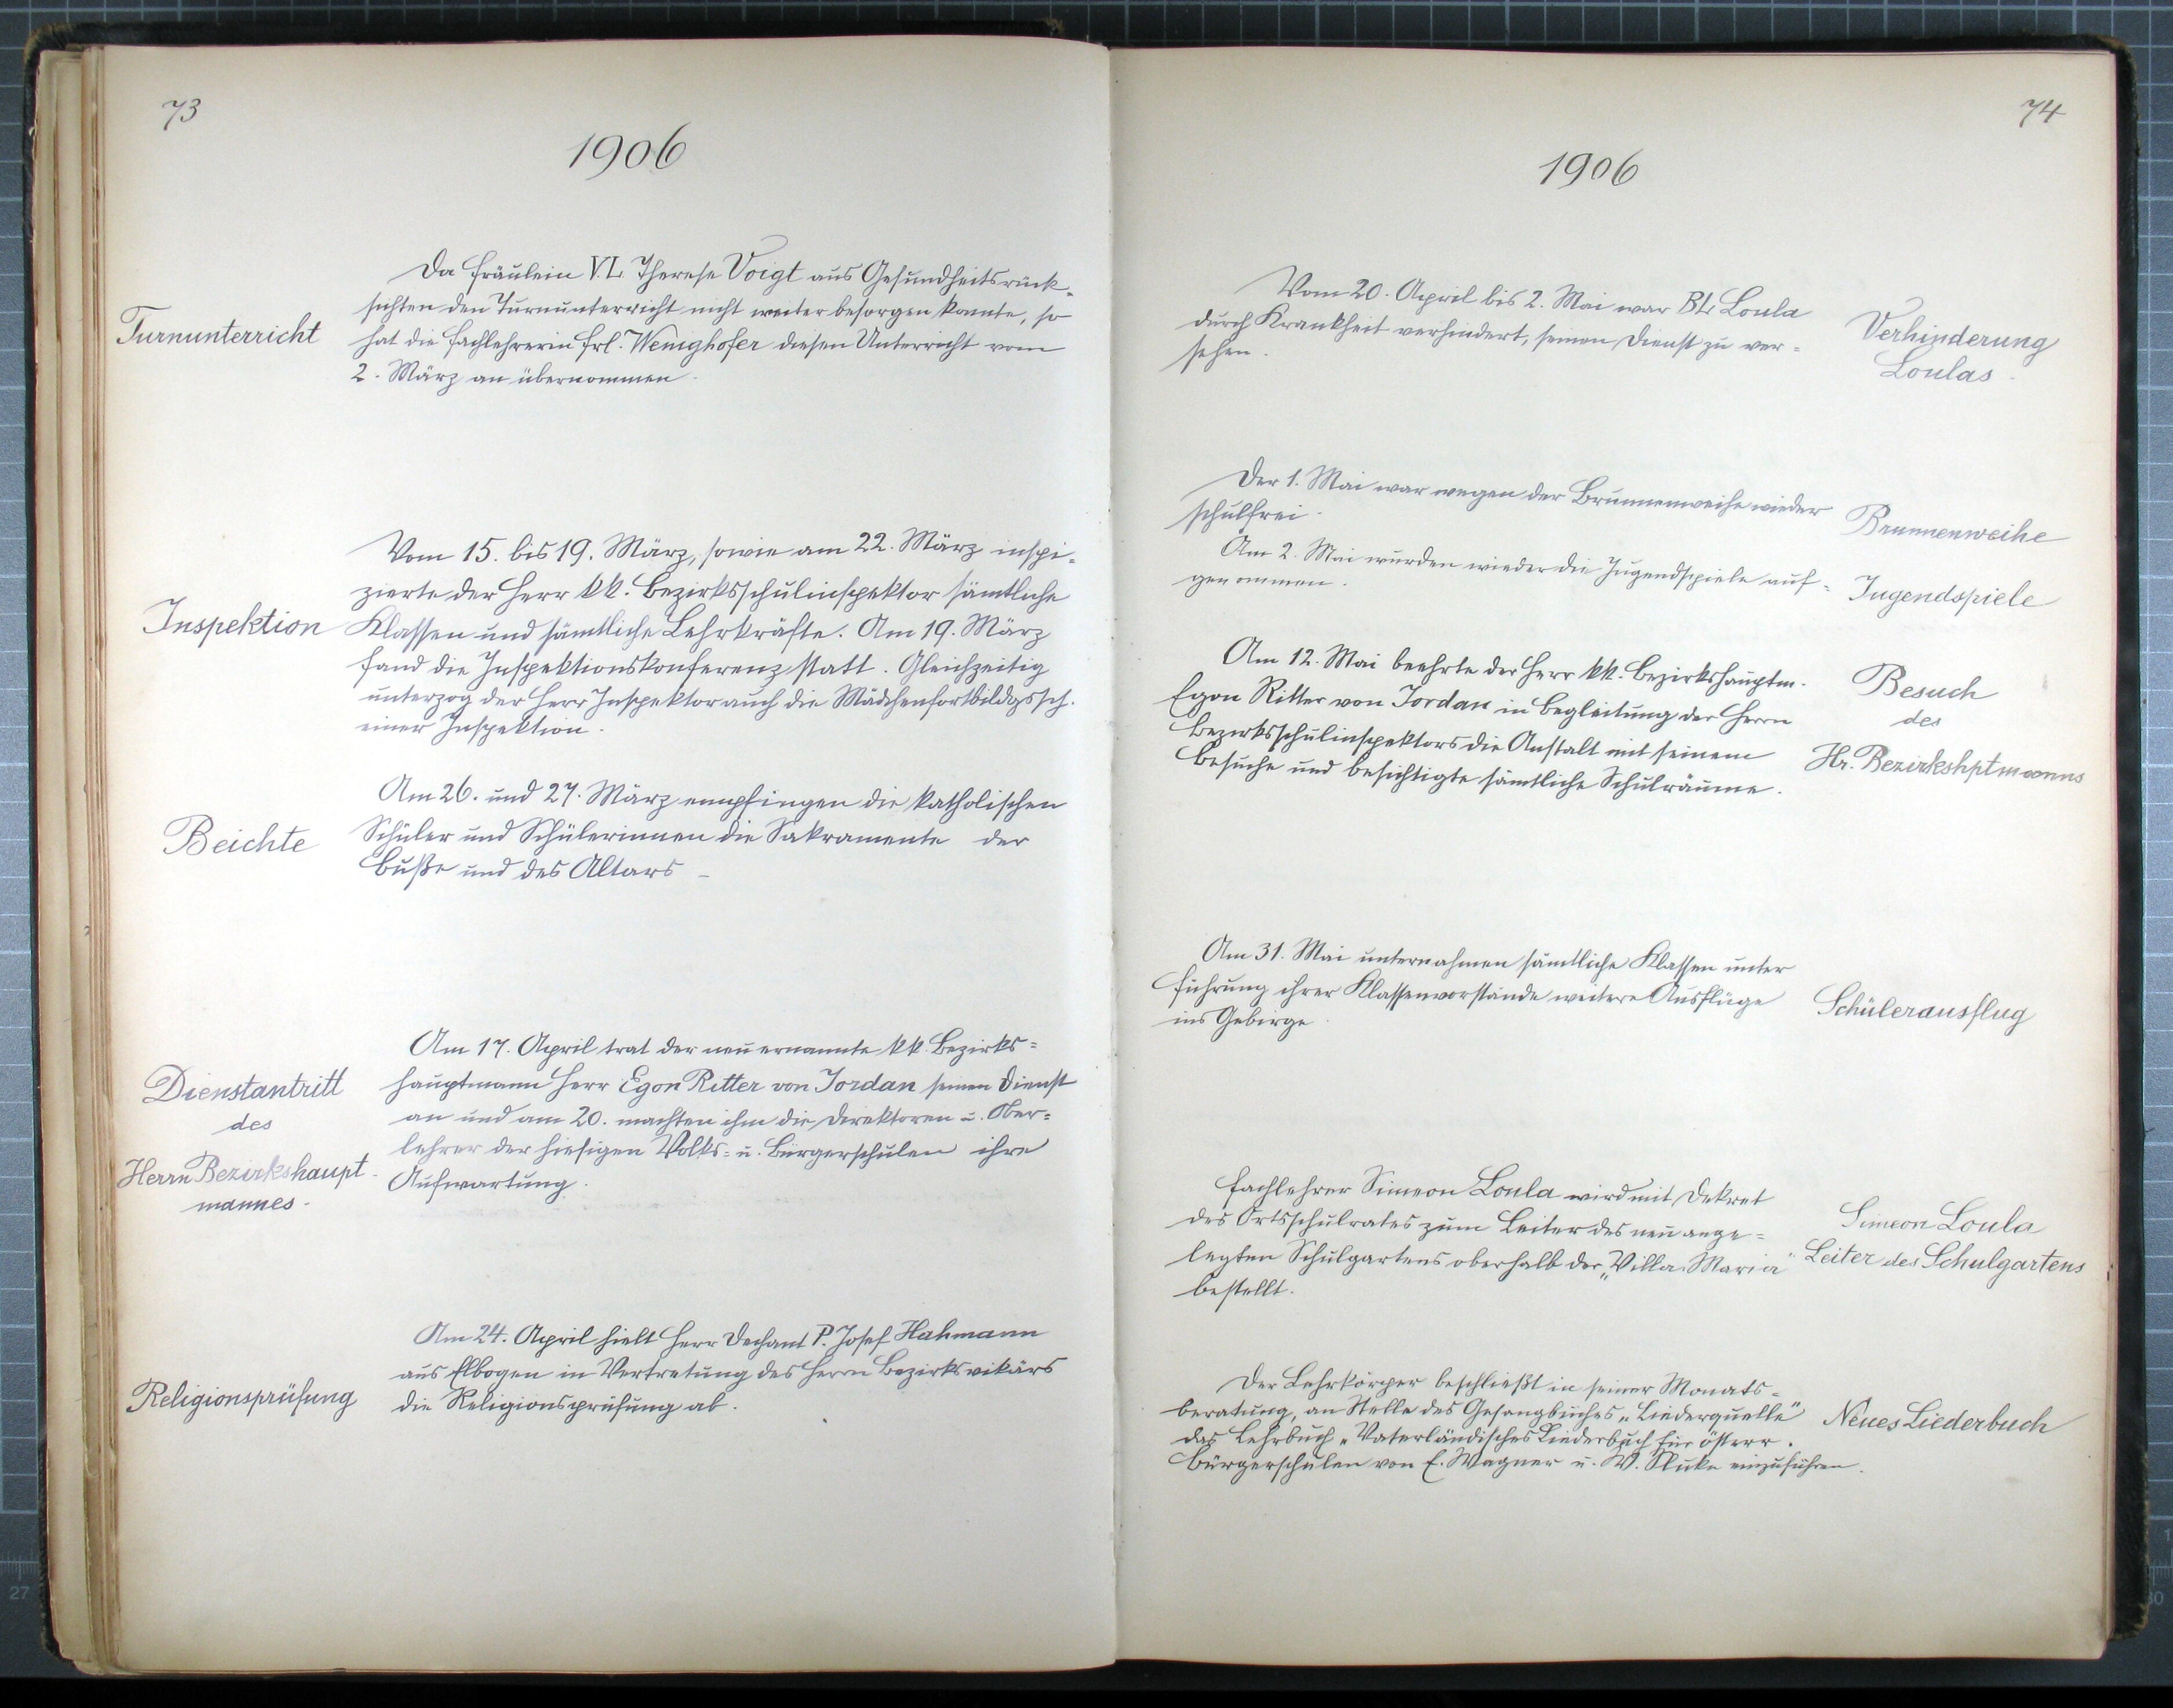 73
1906
Da Fräulein V.L. Therese Voigt aus Gesundheitsrück-
sichten den Turnunterricht nicht weiter besorgen konnte, so
Turnunterricht
hat die Fachlehrerin Frl. Wenighofer diesen Unterricht vom
2. März an übernommen.
Vom 15. bis 19. März, sowie am 22. März inspi-
zierte der Herr kk. Bezirksschulinspektor sämtliche
Inspektion
Klassen und sämtliche Lehrkräfte. Am 19. März
fand die Inspektionskonferenz statt. Gleichzeitig
unterzog der Herr Inspektor auch die Mädchenfortbildgssch.
einer Inspektion.
Am 26. und 27. März empfingen die katholischen
Beichte
Schüler und Schülerinnen die Sakramente der
Buße und des Altars –
Am 17. April trat der neuernannte kk. Bezirks=
Dienstantritt
des
Herrn Bezirkshaupt-
mannes.
hauptmann Herr Egon Ritter von Jordan seinen Dienst
an und am 20. machten ihm die Direktoren u. Ober=
lehrer der hiesigen Volks= u. Bürgerschulen ihre
Aufwartung.
Am 24. April hielt Herr Dechant P. Josef Hahmann
aus Elbogen in Vertretung des Herrn Bezirksvikärs
Religionsprüfung
die Religionsprüfung ab.
74
1906
Vom 20. April bis 2. Mai war Loula
durch Krankheit verhindert, seinen Dienst zu ver=
sehen.
Verhinderung
Loulas.
Der 1. Mai war wegen der Brunnenweihe wieder
schulfrei.
Brunnenweihe
Am 2. Mai wurden wieder die Jugendspiele auf=
genommen.
Jugendspiele
Am 12. Mai beehrte der Herr kk. Bezirkshauptm.
Egon Ritter von Jordan in Begleitung des Herrn
Bezirksschulinspektors die Anstalt mit seinem
Besuche und besichtigte sämtliche Schulräume.
Besuch
des
Hr. Bezirkshptmanns
Am 31. Mai unternahmen sämtliche Klassen unter
Führung ihrer Klassenvorstände weitere Ausflüge
ins Gebirge.
Schülerausflug
Fachlehrer Simeon Loula wird mit Dekret
des Ortsschulrates zum Leiter des neu ange=
legten Schulgartens oberhalb der „Villa Maria"
bestellt.
Simeon Loula
Leiter des Schulgartens
Der Lehrkörper beschließt in seiner Monats=
beratung, an Stelle des Gesangbuches „Liederquelle"
das Lehrbuch „Vaterländisches Liederbuch für österr.
Bürgerschulen von E. Wagner u. W. einzuführen.
Neues Liederbuch
27